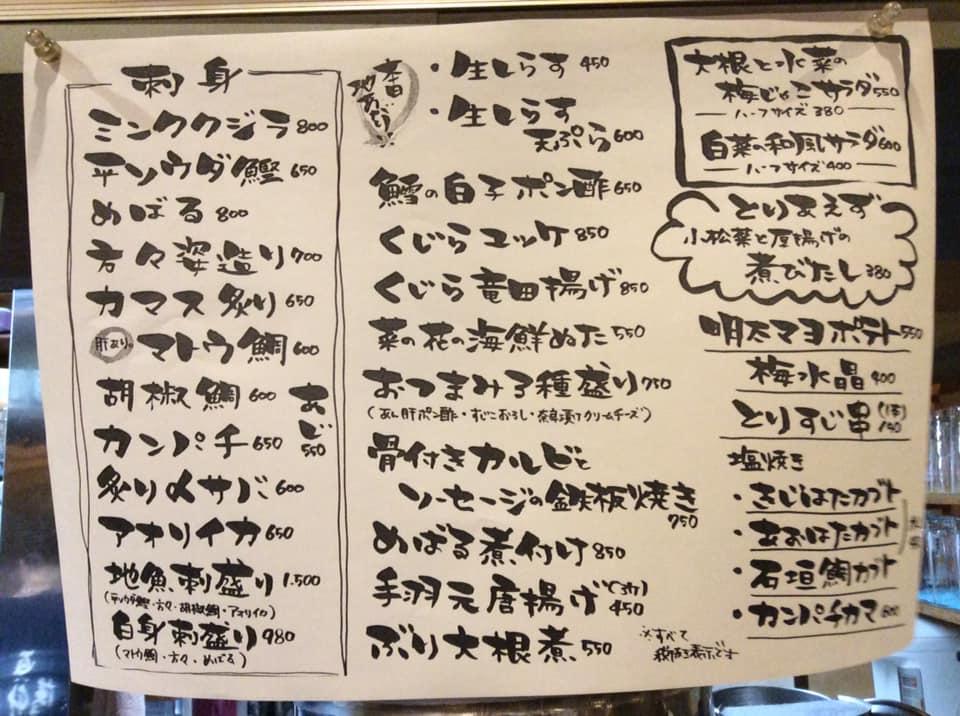 刺身
ミンククジラ 800
平ソウダ鰹 650
めばる 800
方々姿造り 700
カマス炙り 650
肝あり マトウ鯛 600
胡椒鯛 600
カンパチ 650
あじ 550
炙り〆サバ 600
アオリイカ 650
地魚刺盛り 1.500
(平ソウダ鰹・方々・胡椒鯛・アオリイカ)
白身刺盛り 980
(マトウ鯛・方々・めばる)
本日
・生しらす 450
・生しらす
天ぷら 600
鱈の白子ポン酢 650
くじらユッケ 850
くじら竜田揚げ 850
菜の花の海鮮ぬた 550
おつまみ3種盛り 750
(あん肝ポン酢・すじこおろし・奈良漬クリームチーズ)
骨付きカルビと
ソーセージの鉄板焼き
750
めばる煮付け 850
手羽元唐揚げ (3ヶ) 450
ぶり大根煮 550
※すべて
税抜き表示です
大根と水菜の
梅じゃこサラダ 550
ハーフサイズ 380
白菜の和風サラダ 600
ハーフサイズ 400
とりあえず
小松菜と厚揚げの
煮びたし 380
明太マヨポテト 550
梅水晶 400
とりすじ串 (1本) 190
塩焼き
・きじはたカブト
・あおはたカブト
・石垣鯛カブト
・カンパチカマ 600